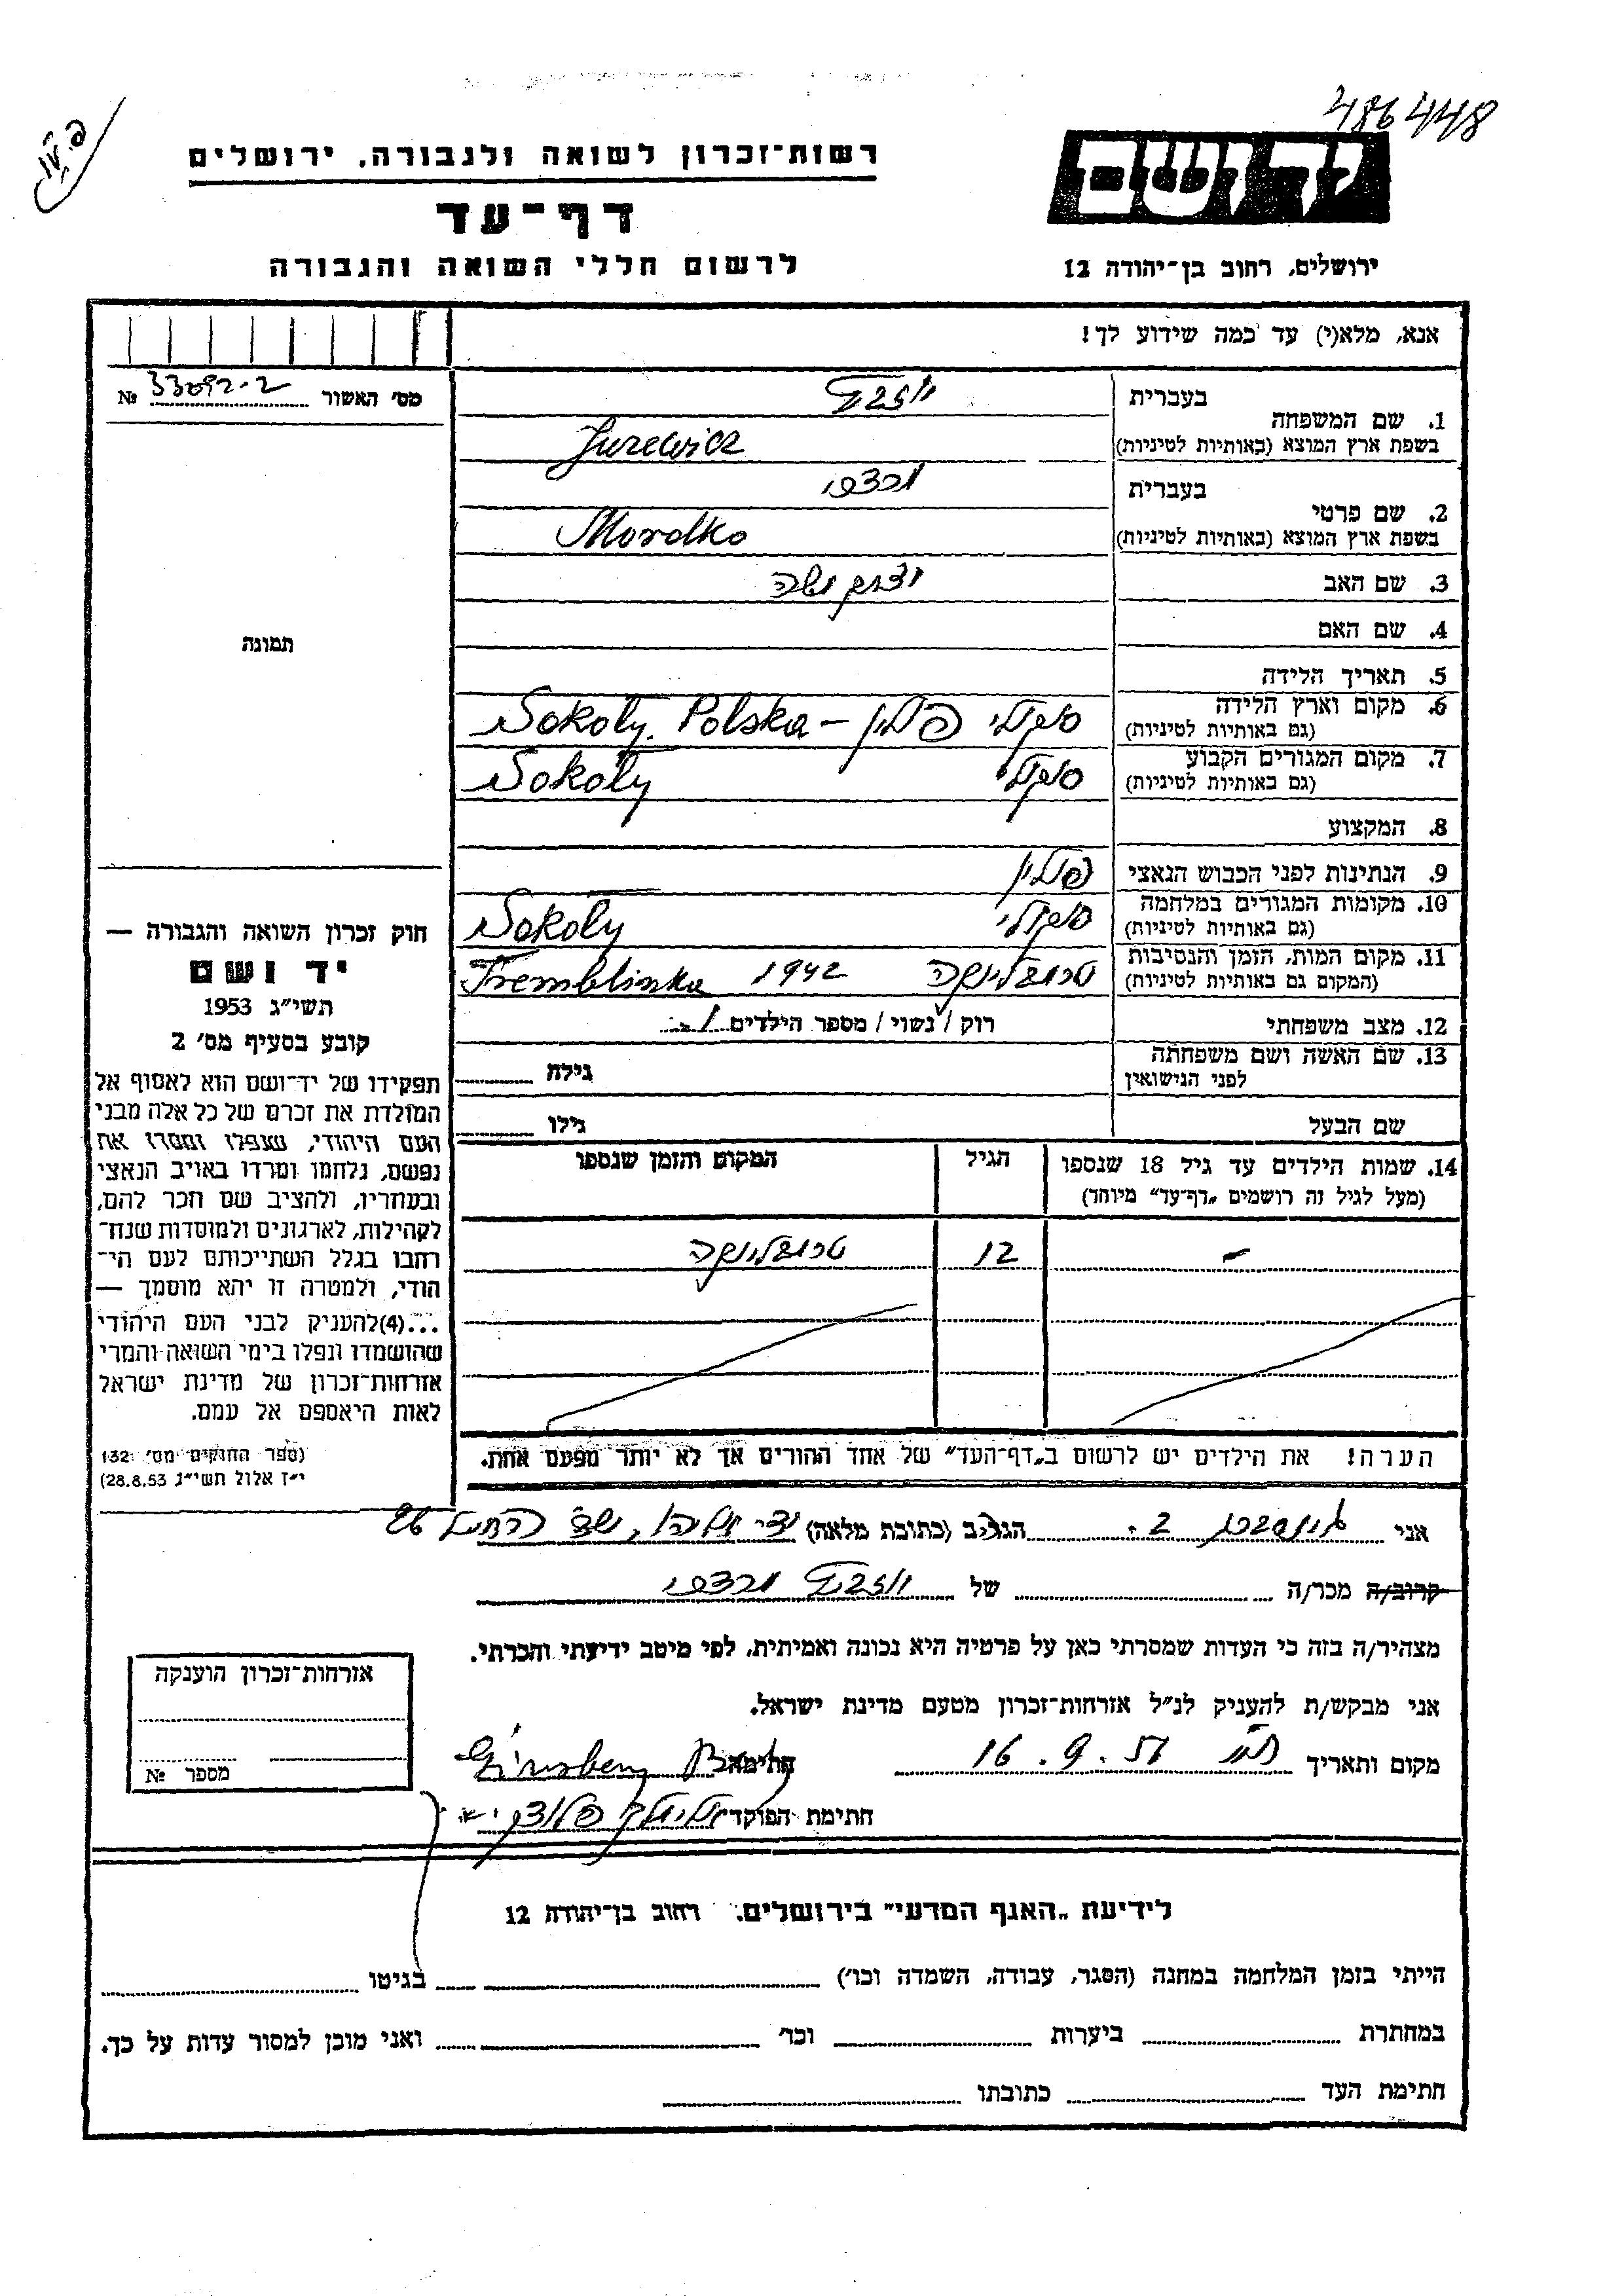 486448
רשות־זכרון לשואה ולגבורה, ירושלים
יד ושם
דף־עד
לרשום חללי השואה והגבורה
ירושלים, רחוב בן־יהודה 12
אנא, מלא(י) עד כמה שידוע לך!
מס׳ האשור 33092-2 №
בעברית
1. שם המשפחה
בשפת ארץ המוצא (באותיות לטיניות) Jurewicz
בעברית מרדכי
2. שם פרטי
בשפת ארץ המוצא (באותיות לטיניות) Mordko
3. שם האב
4. שם האם
תמונה
5. תאריך הלידה
6. מקום וארץ הלידה סוקולי פולין – Sokoly, Polska
(גם באותיות לטיניות)
7. מקום המגורים הקבוע סוקולי Sokoly
(גם באותיות לטיניות)
8. המקצוע
9. הנתינות לפני הכבוש הנאצי פולין
10. מקומות המגורים במלחמה סוקולי Sokoly
(גם באותיות לטיניות)
11. מקום המות, הזמן והנסיבות טרמבלינקה 1942 Tremblinka
(המקום גם באותיות לטיניות)
12. מצב משפחתי רוק / נשוי / מספר הילדים 1
13. שם האשה ושם משפחתה
לפני הנישואין גילה
שם הבעל גילו
14. שמות הילדים עד גיל 18 שנספו הגיל המקום והזמן שנספו
(מעל לגיל זה רושמים „דף־עד״ מיוחד)
– 12 טרמבלינקה
הערה! את הילדים יש לרשום ב„דף־העד״ של אחד ההורים אך לא יותר מפעם אחת.
חוק זכרון השואה והגבורה —
יד ושם
תשי״ג 1953
קובע בסעיף מס׳ 2
תפקידו של יד־ושם הוא לאסוף אל
המולדת את זכרם של כל אלה מבני
העם היהודי, שנפלו ומסרו את
נפשם, נלחמו ומרדו באויב הנאצי
ובעוזריו, ולהציב שם וזכר להם,
לקהילות, לארגונים ולמוסדות שנח־
רבו בגלל השתייכותם לעם הי־
הודי, ולמטרה זו יהא מוסמך —
...(4) להעניק לבני העם היהודי
שהושמדו ונפלו בימי השואה והמרי
אזרחות־זכרון של מדינת ישראל
לאות היאספם אל עמם.
(ספר החוקים מס׳ 132
י״ז אלול תשי״ג 28.8.53)
אני גינסברג ב. הגר/ה ב (כתובת מלאה) 26
קרוב/ה מכר/ה של מרדכי
מצהיר/ה בזה כי העדות שמסרתי כאן על פרטיה היא נכונה ואמיתית, לפי מיטב ידיעתי והכרתי.
אני מבקש/ת להעניק לנ״ל אזרחות־זכרון מטעם מדינת ישראל.
מקום ותאריך 16.9.57 חתימה Ginsberg
חתימת הפוקד
אזרחות־זכרון הוענקה
מספר №
לידיעת „האגף המדעי״ בירושלים, רחוב בן־יהודה 12
הייתי בזמן המלחמה במחנה (הסגר, עבודה, השמדה וכו׳) בגיטו
במחתרת ביערות וכו׳ ואני מוכן למסור עדות על כך.
חתימת העד כתובתו